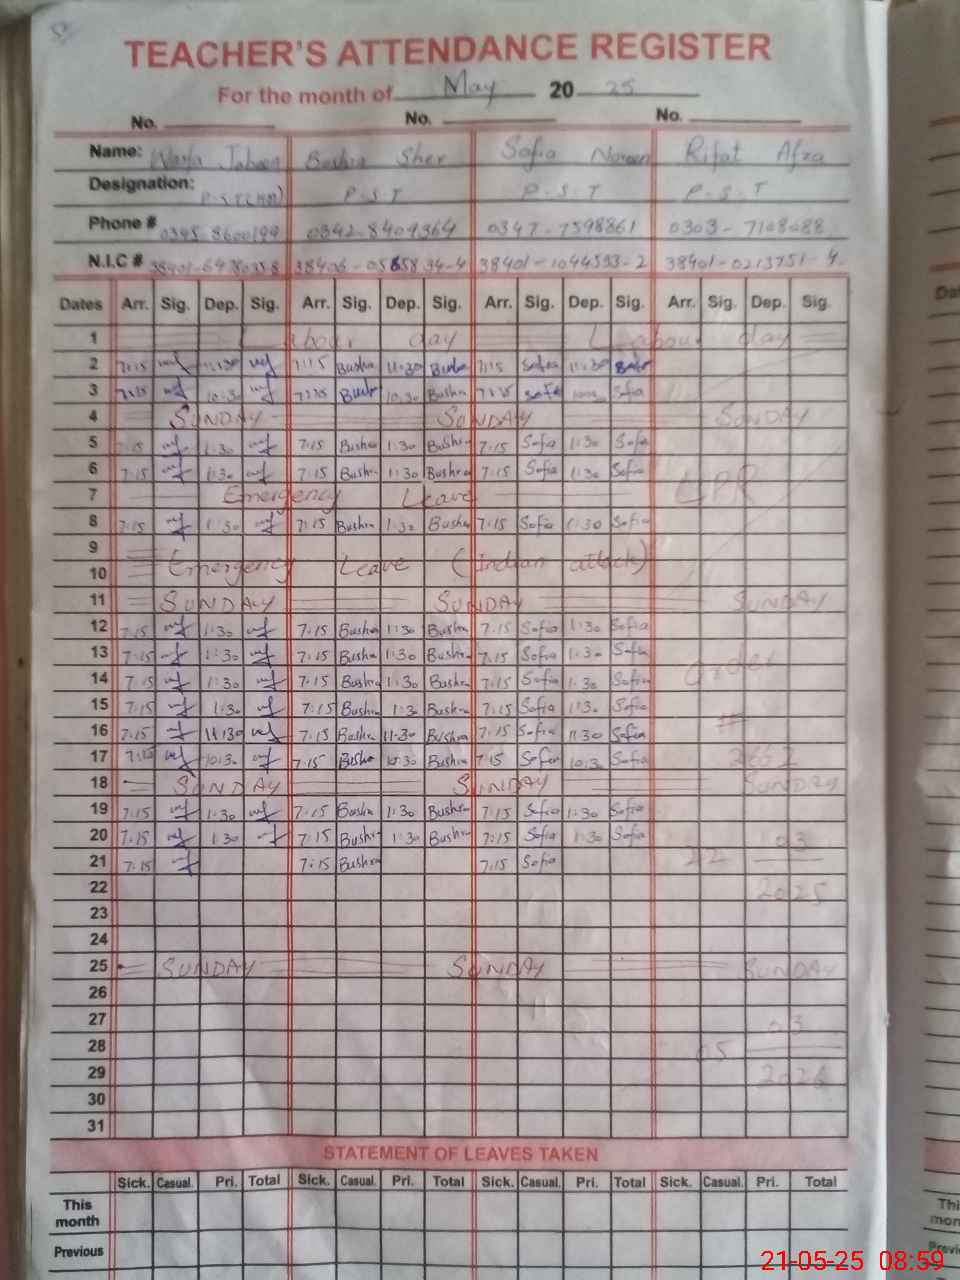 TEACHER'S ATTENDANCE REGISTER
For the month of May 2025
No. No. No.
Name: Jabeen Bushra Sher Sofia Noreen Rifat Afza
Designation: P.S.T(HM) P.S.T P.S.T P.S.T
Phone # 0345-8600199 0342-8409364 0347-7598861 0303-7108088
N.I.C # 38406-0565834-4 38401-1044593-2 38401-0213751-4
Dates Arr. Sig. Dep. Sig. Arr. Sig. Dep. Sig. Arr. Sig. Dep. Sig. Arr. Sig. Dep. Sig.
1 Labour day Labour day
2 7:15 11:30 7:15 Bushra 11:30 Bushra 7:15 Sofia 11:30
3 7:15 10:30 7:15 10:30 Bushra 7:15 Sofia Sofia
4 SUNDAY SUNDAY SUNDAY
5 7:15 1:30 7:15 Bushra 1:30 Bushra 7:15 Sofia 1:30 Sofia
6 7:15 1:30 7:15 Bushra 1:30 Bushra 7:15 Sofia 1:30 Sofia
LPR
7 Emergency Leave
8 7:15 1:30 7:15 Bushra 1:30 Bushra 7:15 Sofia 1:30 Sofia
9
Emergency Leave (Indian attack)
10
11 SUNDAY SUNDAY SUNDAY
12 7:15 1:30 7:15 Bushra 1:30 Bushra 7:15 Sofia 1:30 Sofia
13 7:15 1:30 7:15 Bushra 1:30 Bushra 7:15 Sofia 1:30 Sofia
Order
14 7:15 1:30 7:15 Bushra 1:30 Bushra 7:15 Sofia 1:30 Sofia
15 7:15 1:30 7:15 Bushra 1:30 Bushra 7:15 Sofia 1:30 Sofia
#
16 7:15 11:30 7:15 Bushra 11:30 Bushra 7:15 Sofia 11:30 Sofia
17 7:15 10:30 7:15 Bushra 10:30 Bushra 7:15 Sofia 10:30 Sofia 2662
18 SUNDAY SUNDAY SUNDAY
19 7:15 1:30 7:15 Bushra 1:30 Bushra 7:15 Sofia 1:30 Sofia
20 7:15 1:30 7:15 Bushra 1:30 Bushra 7:15 Sofia 1:30 Sofia 03
21 7:15 7:15 Bushra 7:15 Sofia 22
22 2025
23
24
25 SUNDAY SUNDAY SUNDAY
26
27 03
28 05
29
30
31
STATEMENT OF LEAVES TAKEN
Sick. Casual. Pri. Total Sick. Casual. Pri. Total Sick. Casual. Pri. Total Sick. Casual. Pri. Total
This month
Previous
21-05-25 08:59